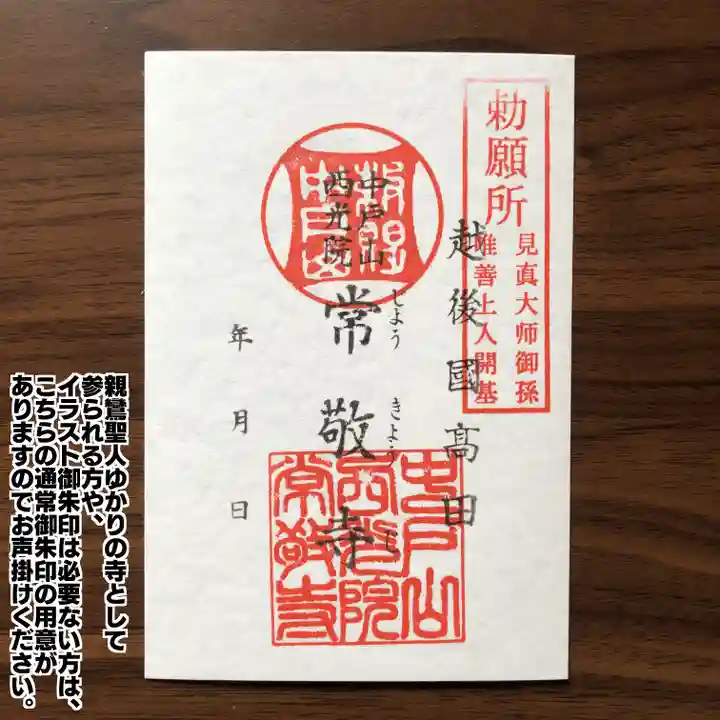 勅願所
見真大师御孫
唯善上人開基
越後國高田
中戸山
西光院
常敬寺
じょう きょう じ
年 月 日
中戸山
西光院
常敬寺
親鸞聖人ゆかりの寺として
参られる方や、
イラスト御朱印は必要ない方は、
こちらの通常御朱印の用意が
ありますのでお声掛けください。